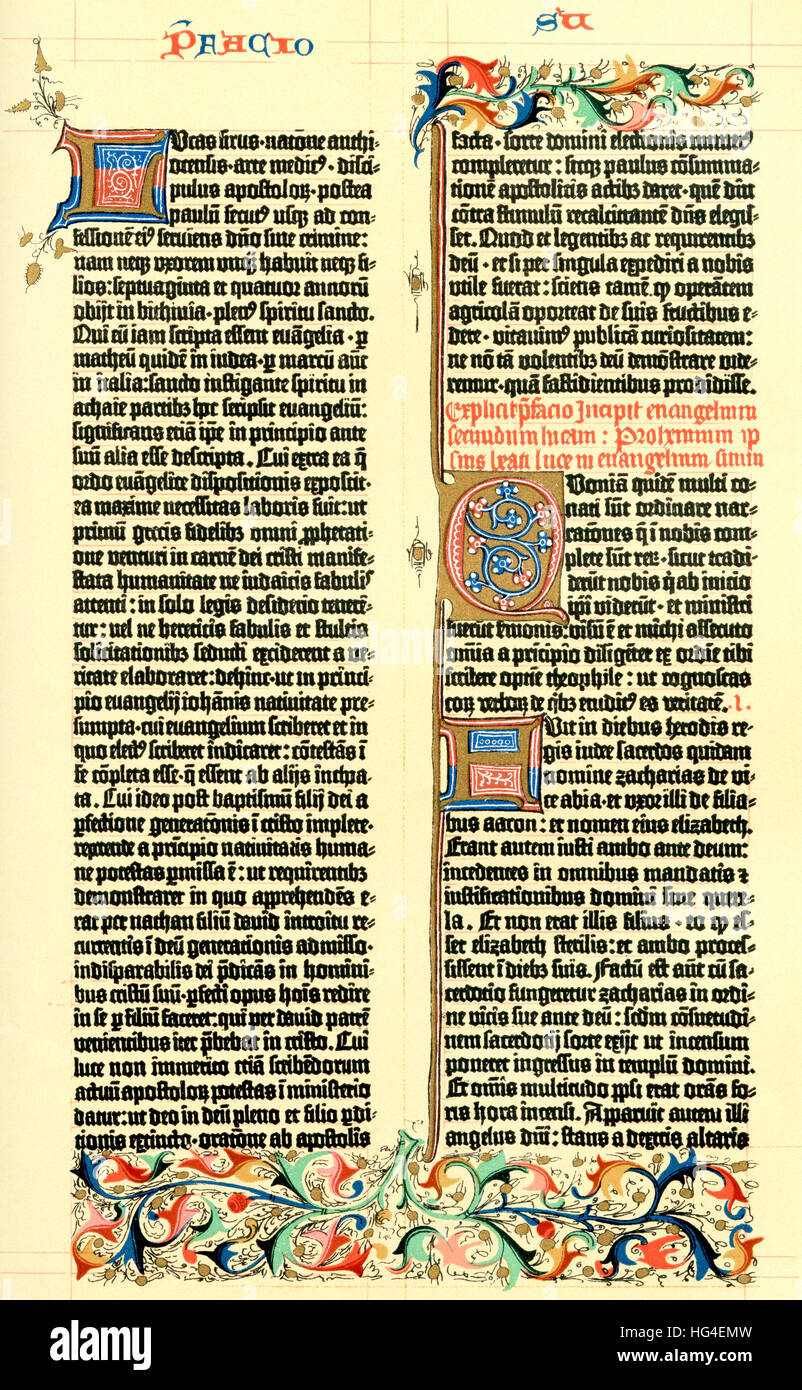 PFACIO
SU
Lucas sirus · natōne anthi-
ocensis · arte medicꝰ · disci-
pulus apostoloꝝ · postea
paulū secutꝰ usqꝫ ad con-
fessionē eiꝰ serviens dn̄o sine crimine:
nam neqꝫ vxorem unqꝫ habuit neqꝫ fi-
lios: septuaginta et quatuor annorū
obijt in bithinia · plenꝰ spiritu sancto.
Qui cū iam scripta essent euāgelia · ꝑ
matheū quidē in iudea · ꝑ marcū aūt
in italia: sancto instigante spiritu in
achaie partibꝫ hoc scripsit euangeliū:
significans etiā ip̄e in principio ante
suū alia esse descripta. Cui extra ea q̄
ordo euāgelice dispositionis exposcit ·
ea maxime necessitas laboris fuit: ut
primū grecis fidelibꝫ omni ꝓphetati-
one venturi in carnē dei cristi manife-
stata humanitate ne iudaicis fabulis
attenti: in solo legis desiderio tenerē-
tur: vel ne hereticis fabulis et stultis
solicitationibꝫ seducti exciderent a ve-
ritate elaboraret: dehinc · ut in princi-
pio euangelij iohānis nativitate pre-
sumpta · cui euangelium scriberet et in
quo electꝰ scriberet indicaret: cōtestās ī
se cōpleta esse · q̄ essent ab alijs incha-
ta. Cui ideo post baptismū filij dei a
ꝑfectione generatōnis ī cristo implete ·
repetende a principio nativitatis huma-
ne potestas ꝑmissa ē: ut requirentibꝫ
demonstraret in quo apprehendēs e-
rat per nathan filiū david introitu re-
currentis ī deū generationis admisso ·
indisparabilis dei p̄dicās in homini-
bus cristū suū · ꝑfecti opus hoīs redire
in se ꝑ filiū faceret: qui per david patrē
venientibus iter p̄bebat in cristo. Cui
luce non immerito etiā scribēdorum
actuū apostoloꝝ potestas ī ministerio
datur: ut deo in deū pleno et filio ꝑdi-
tionis extincto · oratōne ab apostolis
facta · sorte domini electionis numerꝰ
compleretur: sicqꝫ paulus cōsumma-
tionē apostolicis actibꝫ daret · quē diu
cōtra stimulū recalcitrantē dn̄s elegis-
set. Quod et legentibꝫ ac requirentibꝫ
deū · et si per singula expediri a nobis
utile fuerat: sciens tamē qꝫ operātem
agricolā oporteat de suis fructibus e-
dere · vitavimꝰ publicā curiositatem:
ne nō tā volentibꝫ deū demōstrare vide-
remur · quā fastidientibus prodidisse.
Explicit p̄facio Incipit evangelium
secundum lucam: Prohemium ip
sius beati luce in euangelium suum
Quoniā quidē multi co-
nati sūt ordinare nar-
rationes q̄ ī nobis com-
plete sūt reꝝ · sicut tradi-
derūt nobis q̄ ab inicio
ip̄i viderūt · et ministri
fuerūt sermonis: visū ē et michi assecuto
omnia a pricipio diligēter ex ordine tibi
scribere optīe theophile: ut cognoscas
eoꝝ verboꝝ de q̄bꝫ eruditꝰ es veritatē. I.
Fuit in diebus herodis re-
gis iudee sacerdos quidam
nomine zacharias de vi-
ce abia · et vxor illi de filia-
bus aaron: et nomen eius elizabeth.
Erant autem iusti ambo ante deum:
incedentes in omnibus mandatis ⁊
iustificationibus domini sine quere-
la. Et non erat illis filius · eo qꝫ es-
set elizabeth sterilis: et ambo proces-
sissent ī diebꝫ suis. Factū est aūt cū sa-
cerdotio fungeretur zacharias in ordi-
ne vicis sue ante deū: scdm cōsuetudi-
nem sacerdotij sorte exijt ut incensum
poneret ingressus in templū domini.
Et om̄is multitudo pp̄li erat orās fo-
ris hora incensi. Apparuit autem illi
angelus dn̄i: stans a dextris altaris
alamy
Image ID: HG4EMW
www.alamy.com